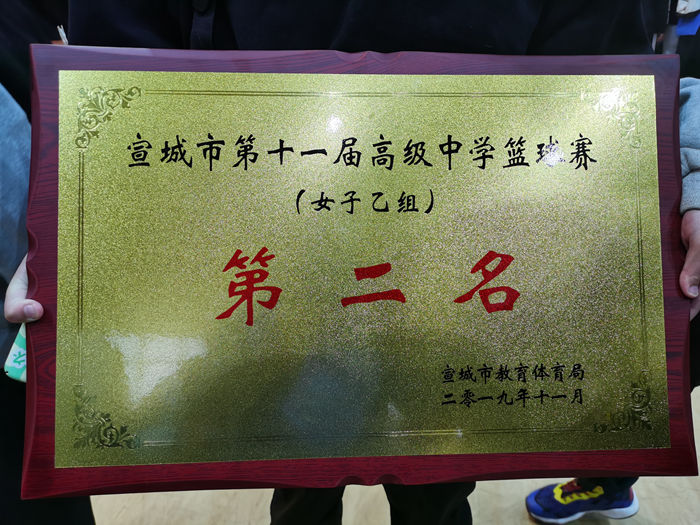 宣城市第十一届高级中学篮球赛
（女子乙组）
第二名
宣城市教育体育局
二零一九年十一月